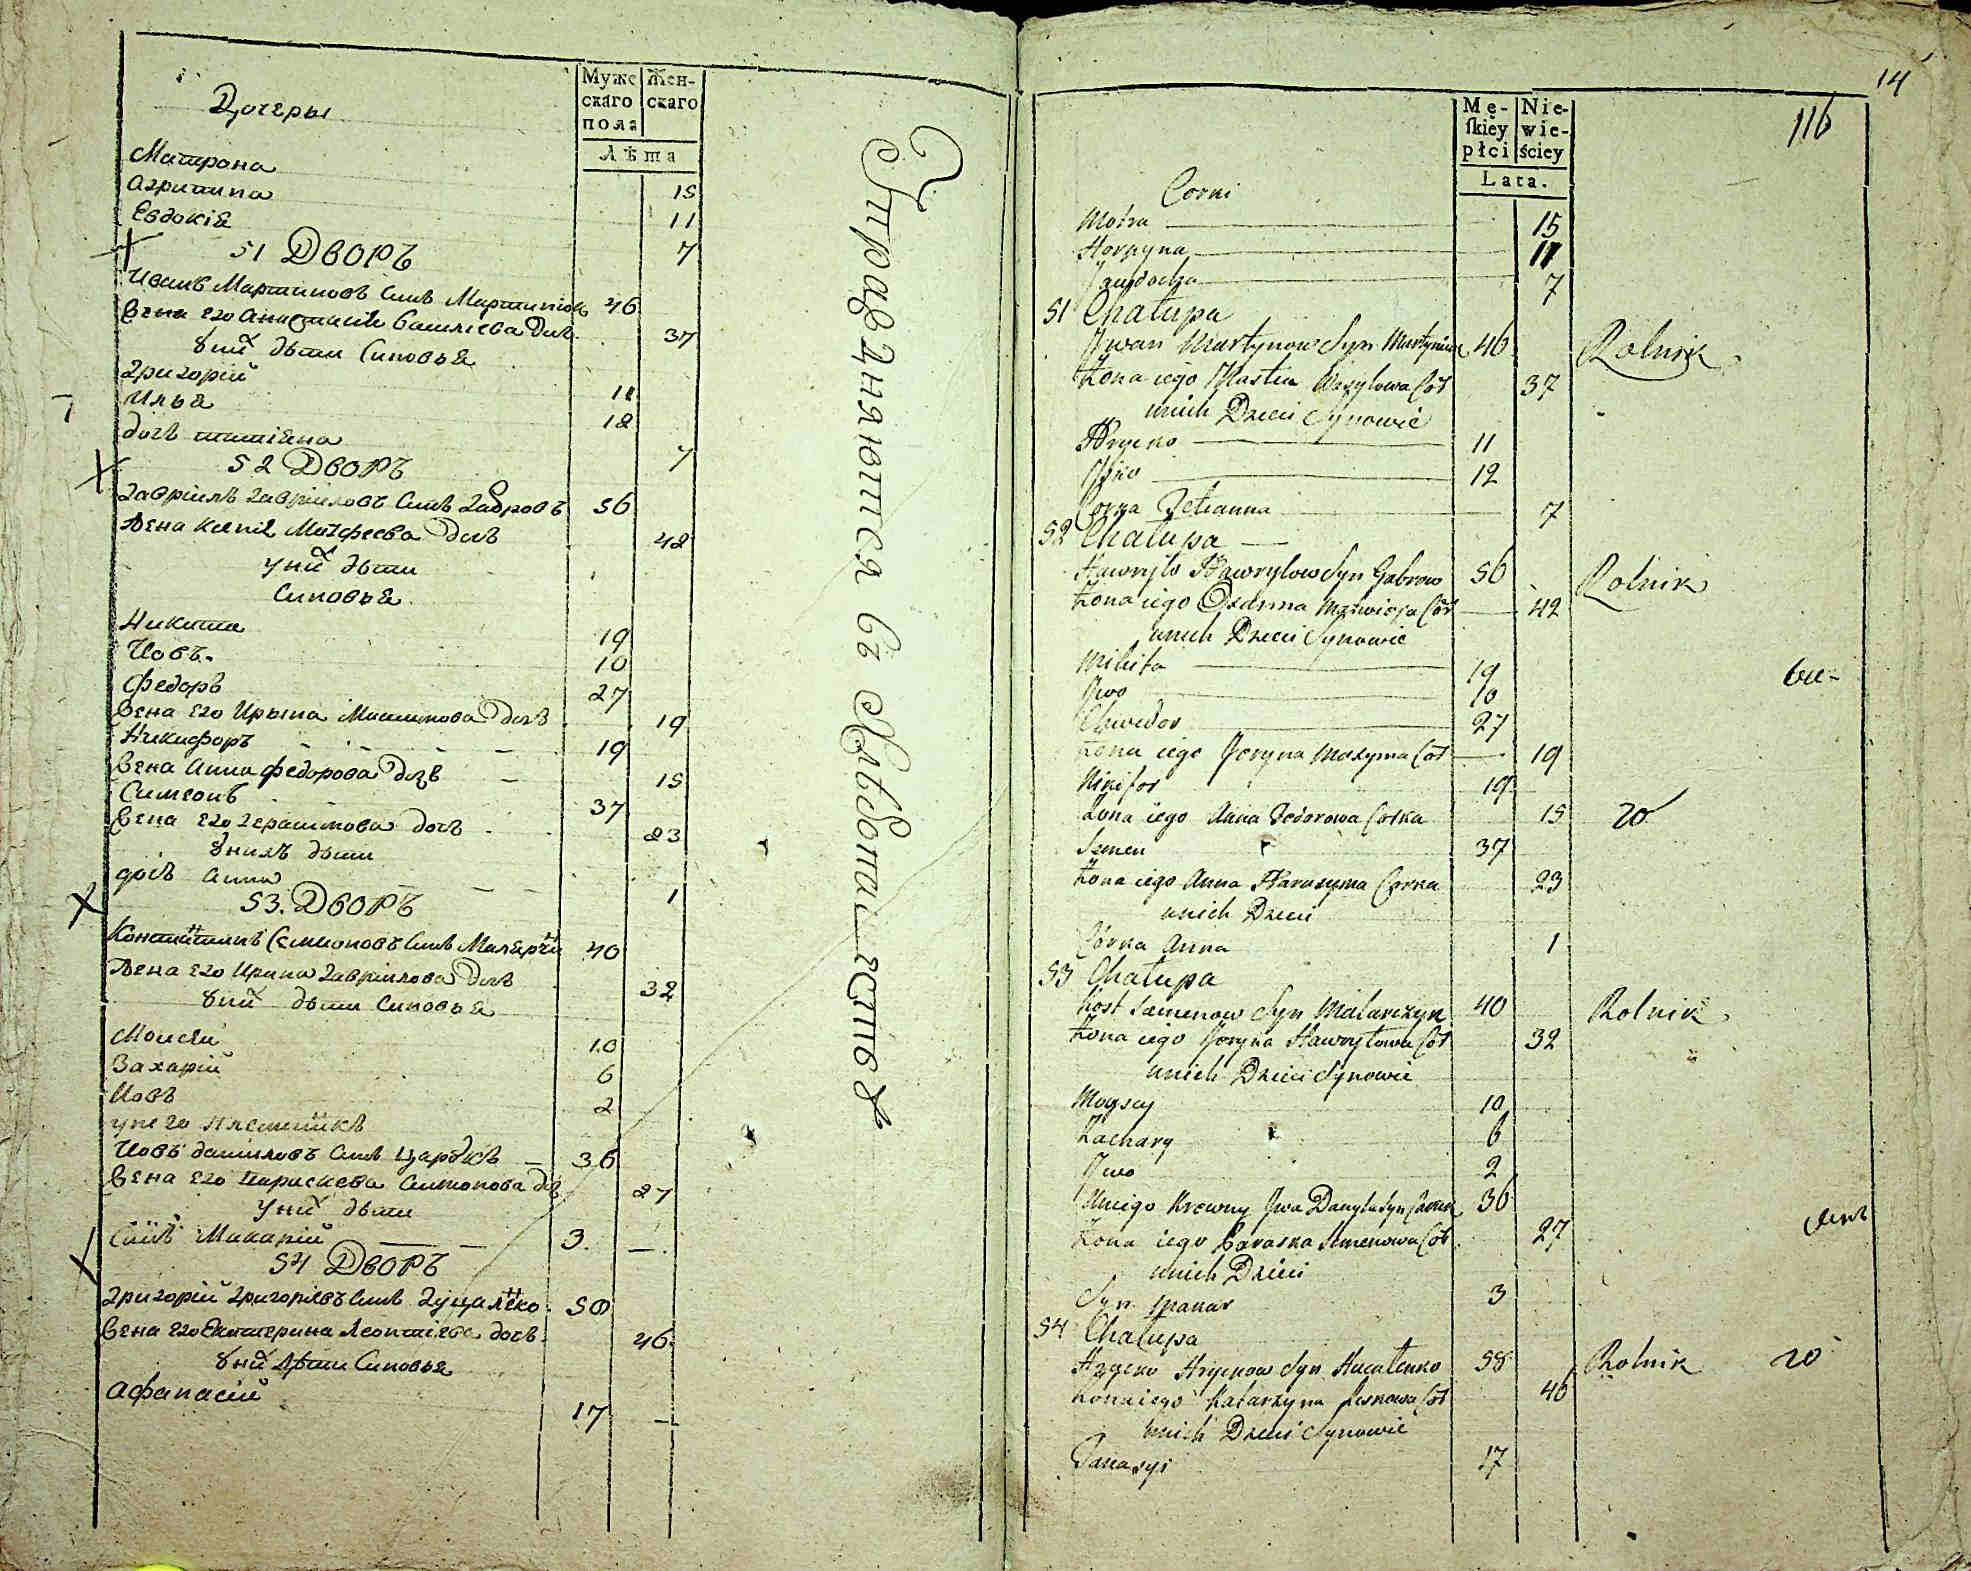 Дочеры
Муже
скаго
пола
Жен-
скаго
Лѣта
Матрона 15
Агрипина 11
Евдокія 7
51 Дворъ
Иванъ Мартиновъ Синъ 46
Жена его Анастасия Василіева Дочь 37
У них дѣти Синовья
Григорій 11
Илья 12
Дочь татіяна 7
52 Дворъ
Гавріилъ Гавріиловъ Синъ Габровъ 56
Жена Матфеева Дочь 42
У них дѣти
Синовья
Никита 19
Иовъ 10
Федоръ 27
Жена Его Ирына Максимова Дочь 19
Никифоръ 19
Жена Анна Федорова Дочь 15
Симеонъ 37
Жена Его Герасимова дочь 23
У нихъ дѣти
дочь Анна 1
53. Дворъ
Синъ 40
Жена Его Ирина Гавріилова Дочь 32
У них дѣти Синовья
Моисей 10
Захарій 6
Иовъ 2
у него племянникъ
Иовъ Даниловъ Синъ 36
Жена Его Параскева Симонова дочь 27
У них дѣти
Синъ Макарій 3. —.
54 Дворъ
Григорій Григоріевъ Синъ 58
Жена Его Екатерина Леонтіева дочь 46
У них Дѣти Синовья
Афанасій 17 —
Упражняются въ Хлебопашествѣ
14
116
Mę-
ſkiéy
płci
Nie-
wie-
ściey
Lata.
Corki
Motra 15
Horpyna 11
Jawdocha 7
51 Chałupa
Jwan Martynow Syn 46 Rolnik
Żona iego Nastia Wasylowa Cor 37
unich Dzieci Synowie
Hryćko 11
Jlko 12
Corka Tetianna 7
52 Chałupa
Hawryło Hawryłow Syn Gabrow 56 Rolnik
Żona iego Matwieja Cor 42
unich Dzieci Synowie
Mikita 19
Jwo 10
Chwedor 27
Żona iego Jeryna Maxyma Cor 19
Nikifor 19
Żona iego Anna Fedorowa Corka 15
Semen 37
Żona iego Anna Harasyma Corka 23
unich Dzieci
Córka Anna 1
53 Chałupa
Kost Semenow Syn Malarczyk 40 Rolnik
Żona iego Jeryna Hawryłowa Cor 32
unich Dzieci Synowie
Moysey 10
Zachary 6
Jwo 2
Uniego Krewny Jwa Danyła Syn 36
Żona iego Paraska Semenowa Cor 27
unich Dzieci
Syn Makar 3
54 Chałupa
Hryćko Hryćkow Syn 58 Rolnik
Żona iego Katarzyna Cor 46
unich Dzieci Synowie
Panasyi 17